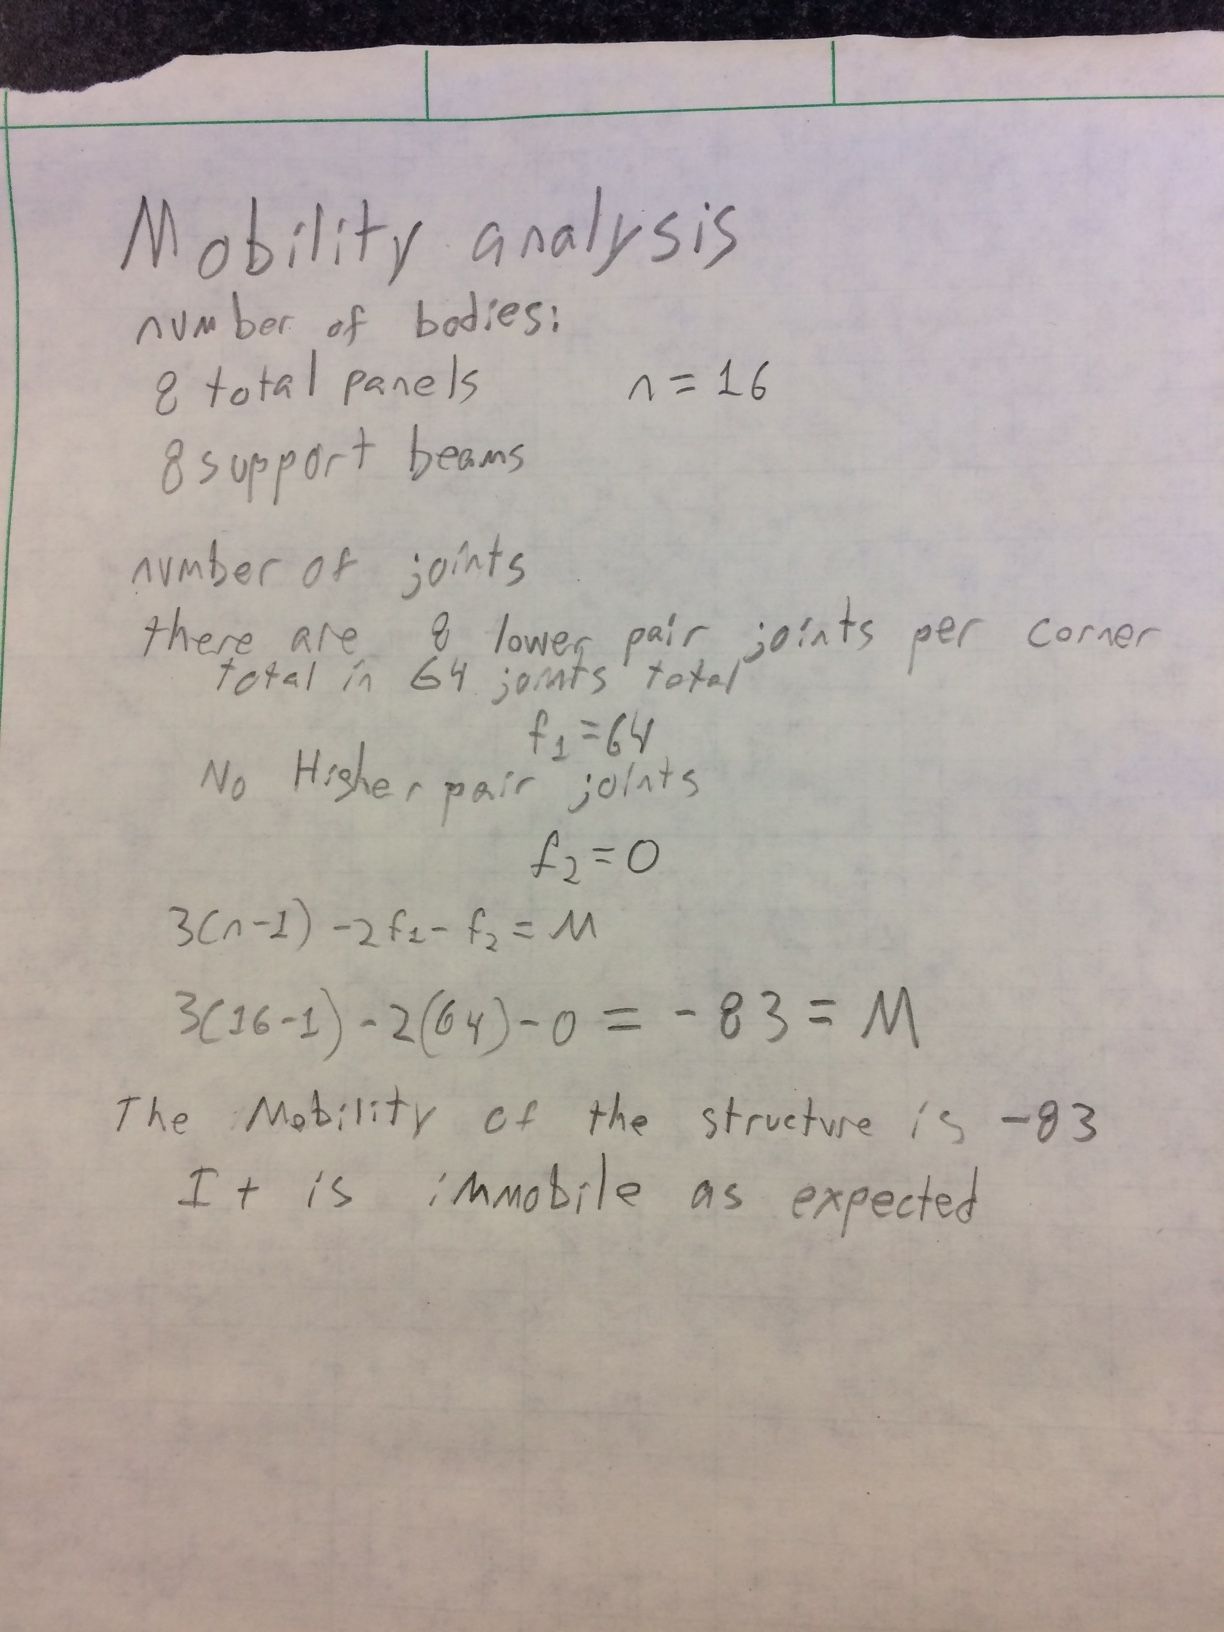 Mobility analysis
number of bodies:
8 total panels n = 16
8 support beams
number of joints
there are 8 lower pair joints per corner
total in 64 joints total
f₁ = 64
No Higher pair joints
f₂ = 0
3(n-1) - 2f₁ - f₂ = M
3(16-1) - 2(64) - 0 = -83 = M
The Mobility of the structure is -83
It is immobile as expected